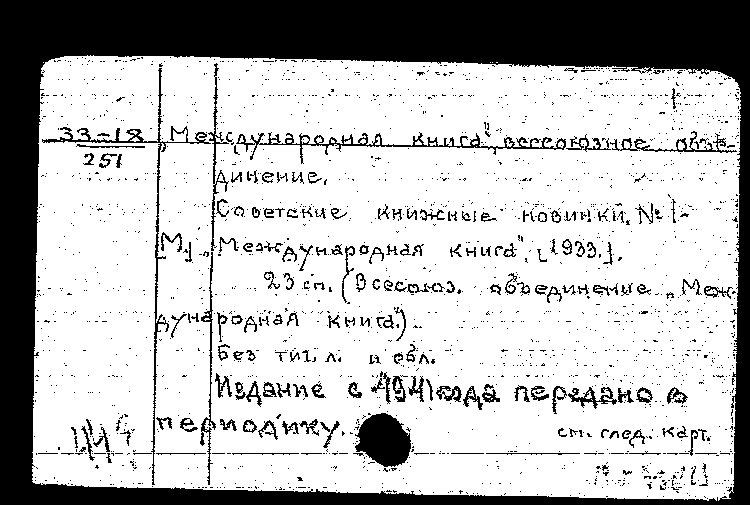 33-18 „Международная книга", всесоюзное объе-
251
динение.
Советские книжные новинки. № 1-
[М.] „Международная книга", [1933.].
23 сп. (Всесоюз. объединение „Меж-
дународная книга").
Без тит. л. и обл.
Издание с 1941 года передано в
периодику.
см. след. карт.